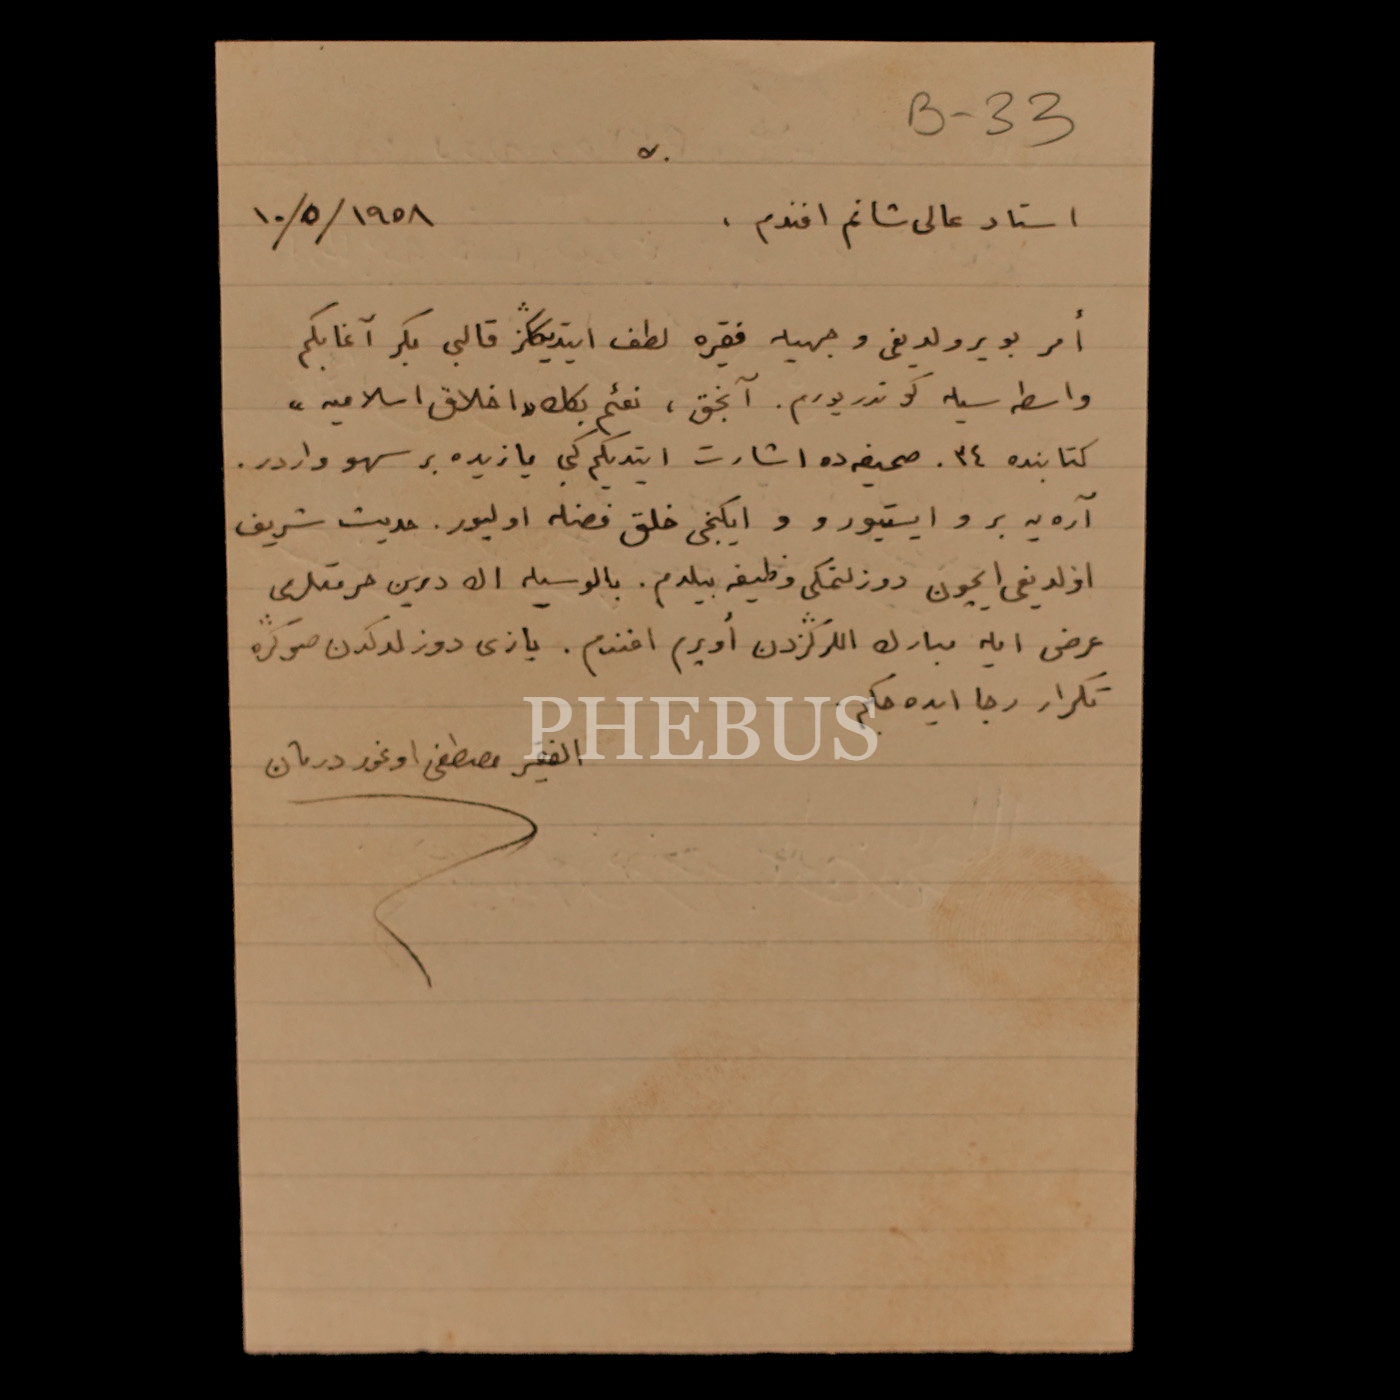 B-33
استاد عالی شانم افندم ، ١٠/٥/١٩٥٨
أمر بویرولدیغی وجهیله فقیره لطف ایتدیگڭز قالبی بكر آغابكم
واسطه سیله كوندریورم . آنجق ، نعیم بكك «اخلاق اسلامیه»
كتابنده ٣٤ . صحیفه ده اشارت ایتدیكم كبی یازیده بر سهو واردر .
آره یه بر و ایستیور و ایكنجی خلق فضله اولیور . حدیث شریف
اولدیغی ایچون دوزلتمكی وظیفه بیلدم . بالوسیله الك درین حرمتلری
عرض ایله مبارك اللرڭزدن أوپرم افندم . یازی دوزلدكدن صوڭره
تكرار رجا ایده جكم .
الفقیر مصطفی اوغور درمان
PHEBUS